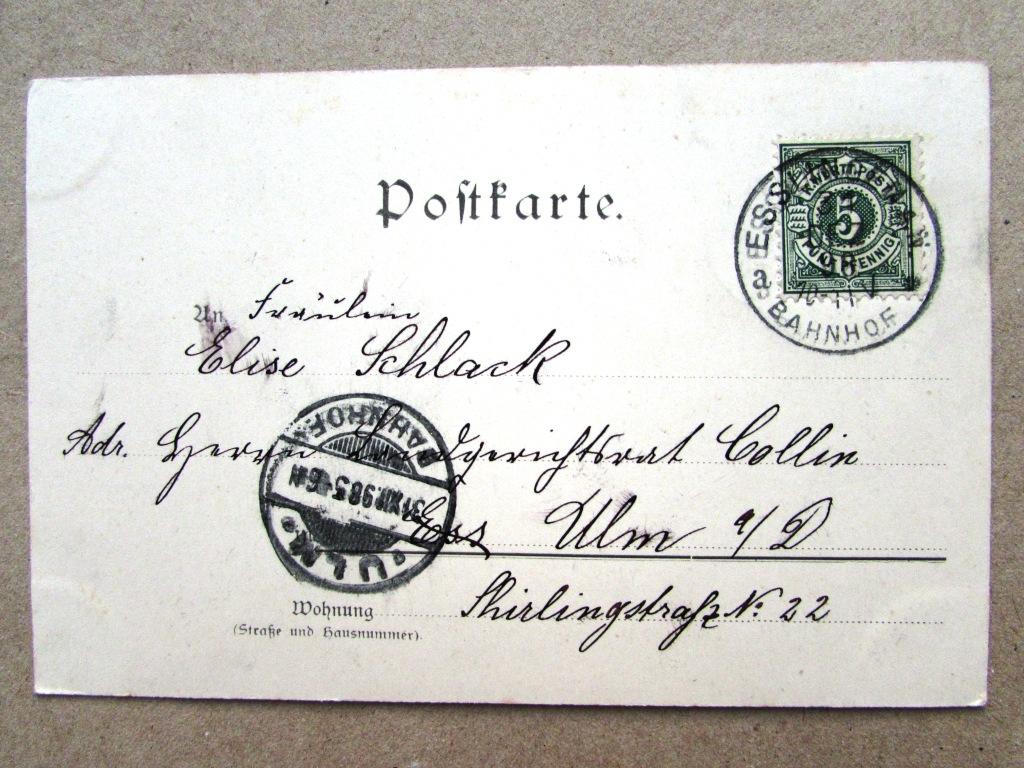 Postkarte.
K. WÜRTT. POST
5
FÜNF PFENNIG
ESSEN
10-11 V
a BAHNHOF
An Fräulein
Elise Schlack
Adr. Herrn Landgerichtsrat Collin
Ess Ulm a/D
BAHNHOF
31 XII 98 5-6 N
ULM
Wohnung
(Straße und Hausnummer).
No. 22